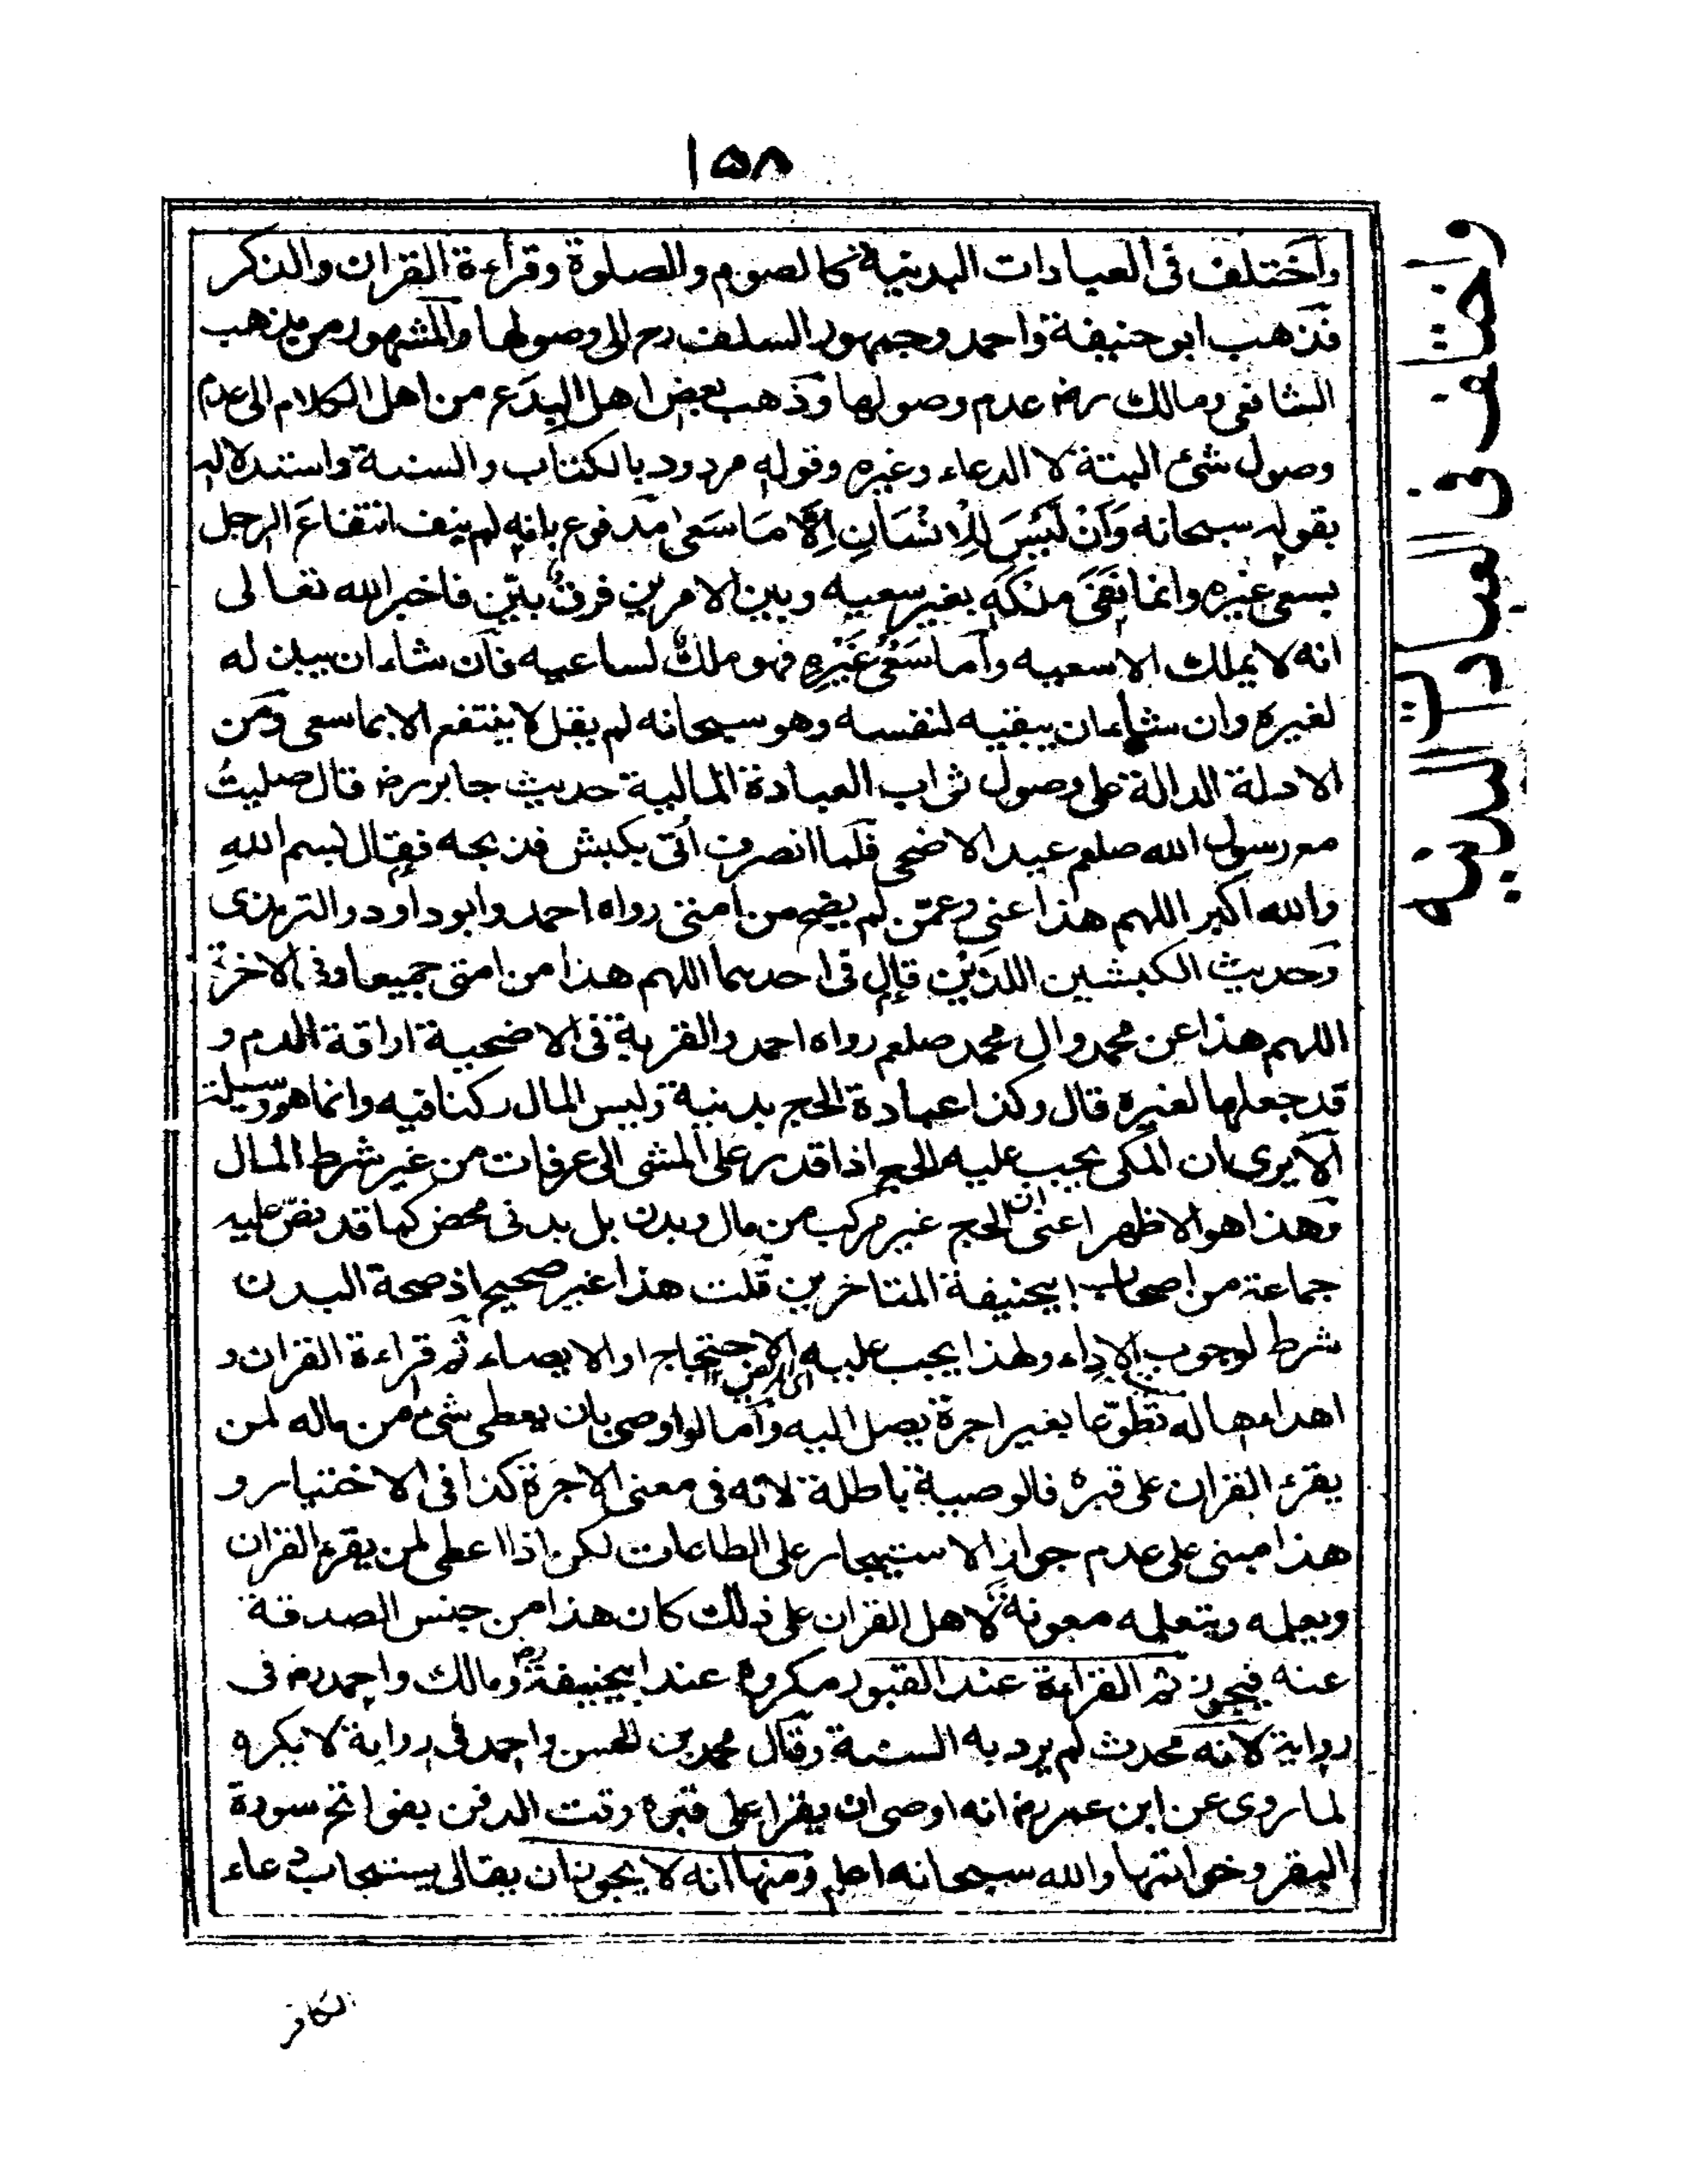 ١٥٨
واختلف فى العبادات البدنية كالصوم والصلوة وقراءة القران والذكر
فذهب ابو حنيفة واحمد وجمهور السلف رح الى وصولها والمشهور من مذهب
الشافعى ومالك رض عدم وصولها وذهب بعض اهل البدع من اهل الكلام الى عدم
وصول شئ البتة لا الدعاء وغيره وقوله مردود بالكتاب والسنة واستدلاله
بقوله سبحانه وَاَنْ لَيْسَ لِلْاِنْسَانِ اِلَّا مَا سَعى مدفوع بانه لم ينف انتفاعَ الرجل
بسعى غيره وانما نَفَى ملكَه بغير سعيه وبين الامرين فرقٌ بيّن فاخبر الله تعالى
انه لا يملك الا سعيه وأما سَعْىُ غَيْرِهِ فهو ملكٌ لساعيه فان شاء ان يبذله
لغيره وان شاء ان يبقيه لنفسه وهو سبحانه لم يقل لا ينتفع الا بما سعى ومن
الادلة الدالة على وصول ثواب العبادة المالية حديث جابر رض قال صليتُ
مع رسول الله صلعم عيد الاضحى فلما انصرف اُتى بكبش فذبحه فقال بسم اللهِ
والله اكبر اللهم هذا عنى وعمّن لم يضح من امتى رواه احمد وابو داود والترمذى
وحديث الكبشين اللذَيْن قال فى احدهما اللهم هذا من امتى جميعا وفى الاخرة
اللهم هذا عن محمد وال محمد صلعم رواه احمد والقربة فى الاضحية اراقة الدم و
قد جعلها لغيره قال وكذا عبادة الحج بدنية وليس المال ركنا فيه وانما هو وسيلة
الا يرى ان المكى يجب عليه الحج اذا قدر على المشى الى عرفات من غير شرط المال
وهذا هو الاظهر اعنى ان الحج غير مركب من مال وبدن بل بدنى محض كما قد نصّ عليه
جماعة من اصحاب ابيحنيفة المتاخرين قلت هذا غير صحيح اذ صحة البدن
شرط لوجوب الاداء ولهذا يجب عليه الاحتجاج او الايصاء ثم قراءة القران و
اى المريض ١٢
اهداءها له تطوّعا بغير اجرة يصل اليه واما لو اوصى بان يعطى شئ من ماله لمن
يقرء القران على قبره فالوصية باطلة لانه فى معنى الاجرة كذا فى الاختيار و
هذا مبنى على عدم جواز الاستيجار على الطاعات لكن اذا اعطى لمن يقرء القران
ويعلمه ويتعلمه معونة لاهل القران على ذلك كان هذا من جنس الصدقة
عنه فيجوز ثم القراءة عند القبور مكروه عند ابيحنيفة رض ومالك واحمد رض فى
رواية لانه محدث لم يرد به السنة وقال محمد بن الحسن واحمد فى رواية لا يكره
لما روى عن ابن عمر رض انه اوصى ان يقرا على قبره وقت الدفن بفواتح سورة
البقر وخواتمها والله سبحانه اعلم ومنها انه لا يجوز ان يقال يستجاب دعاء
الكافر
واختلف فى العبادات البدنية